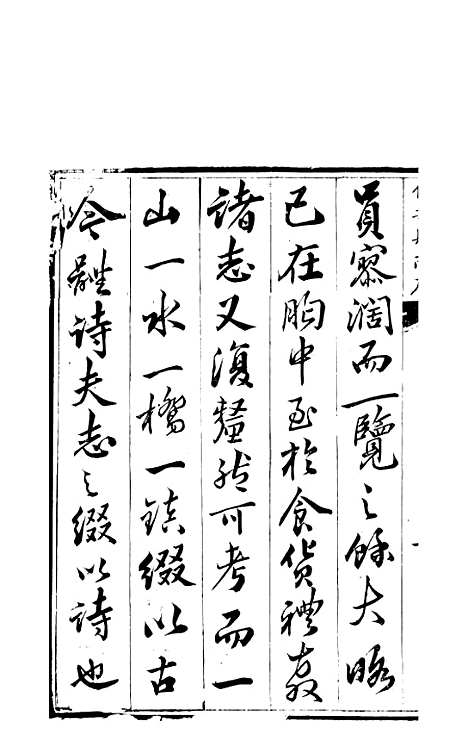 員寥濶而一覽之餘大略
已在胸中至於食貨禮教
諸志又復釐然可考而一
山一水一橋一鎮綴以古
今雜詩夫志之綴以詩也